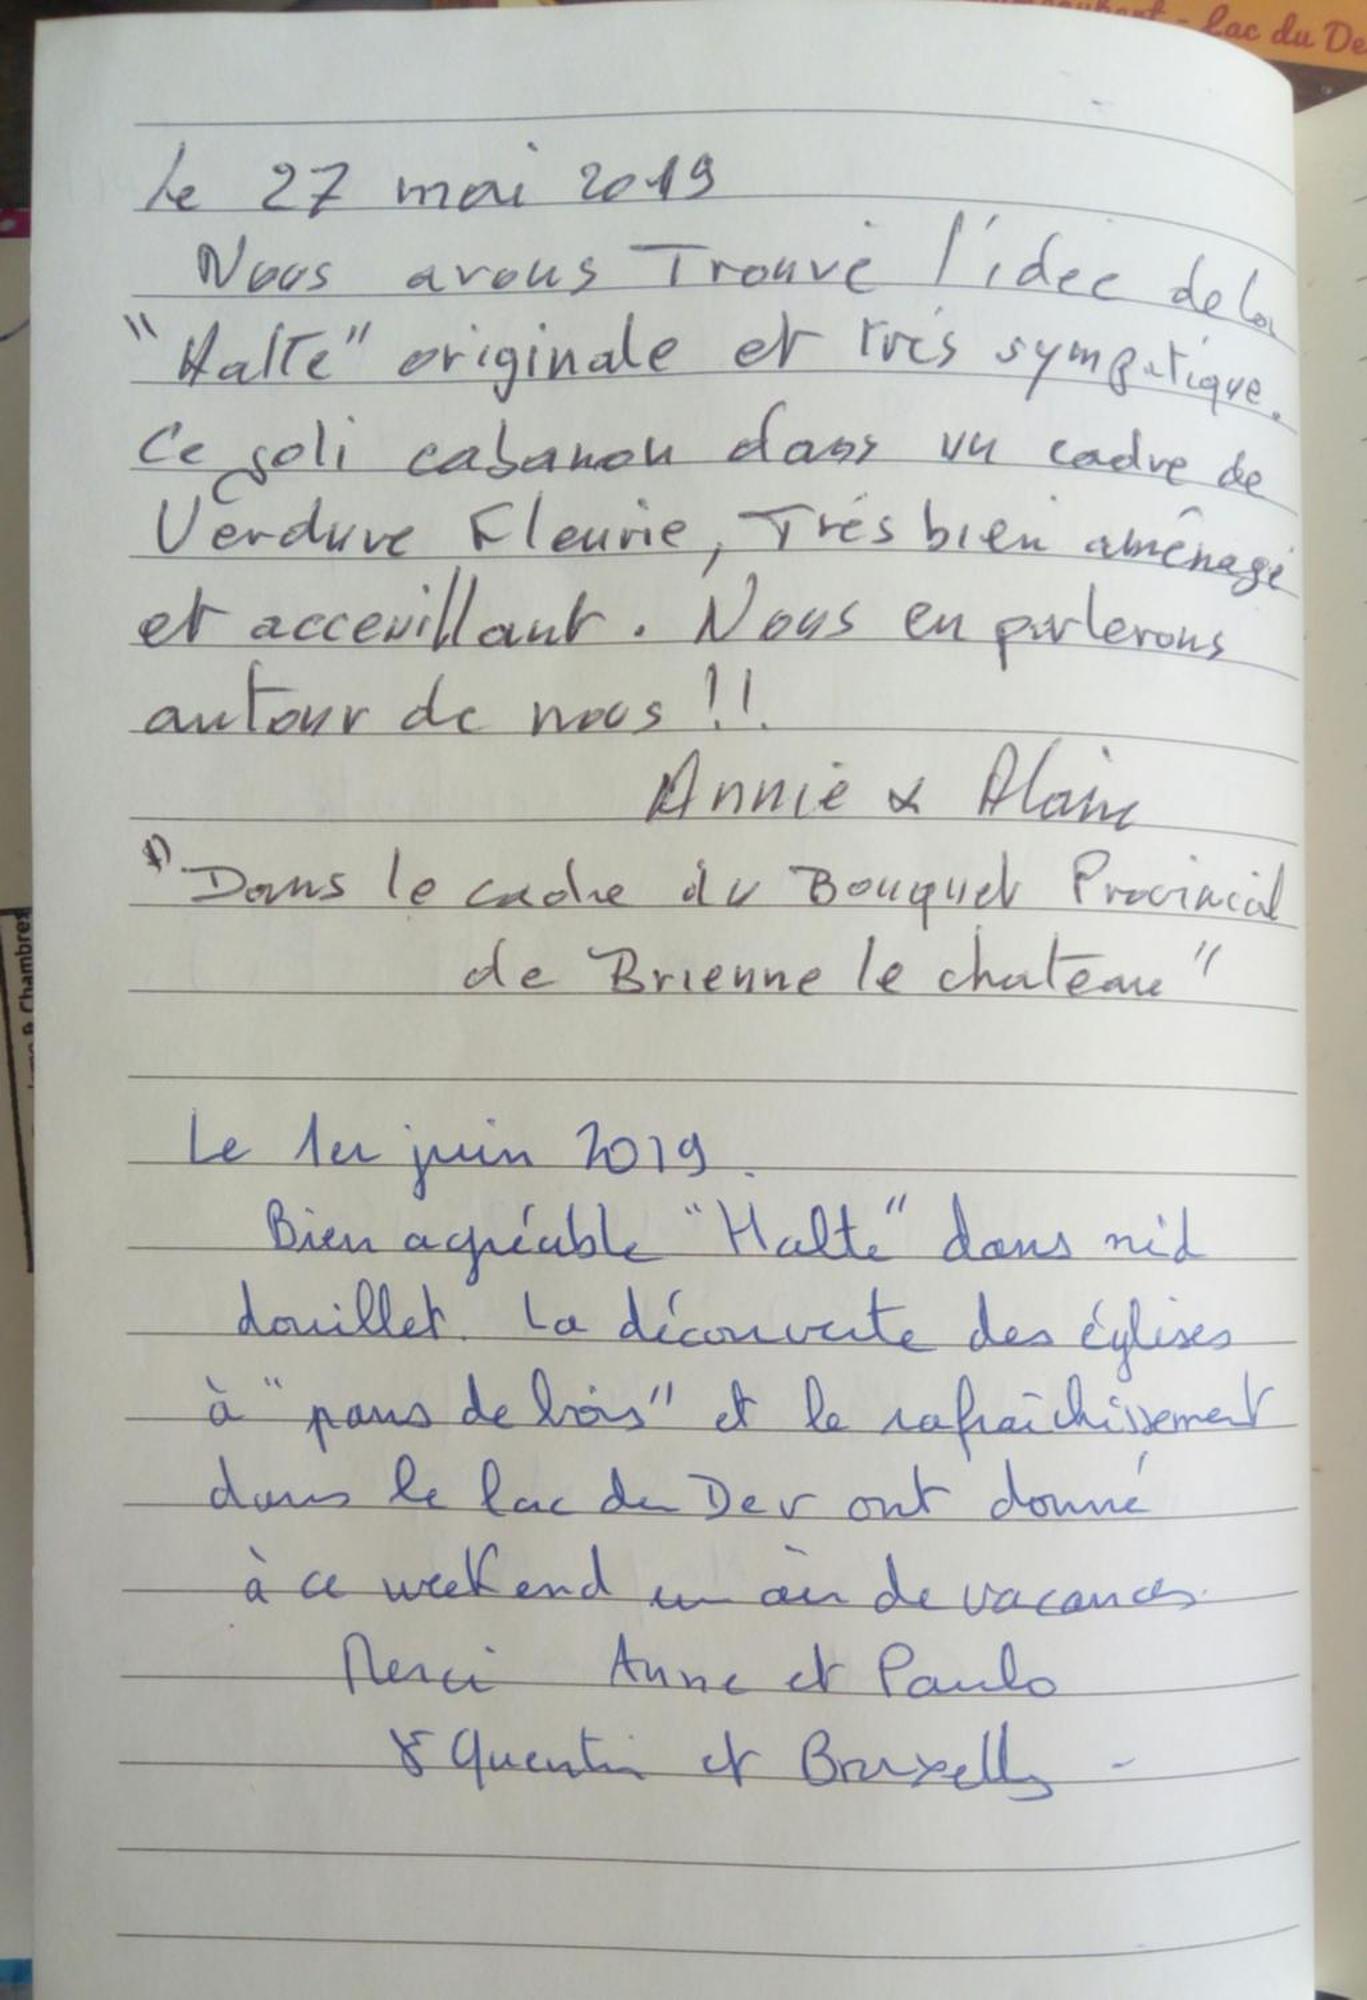 lac du De
Le 27 mai 2019
Nous avons Trouvé l'idée de la
"Halte" originale et très sympatique.
Ce joli cabanon dans un cadre de
Verdure Fleurie, Très bien aménagé
et acceuillant. Nous en parlerons
autour de nous !!.
Annie & Alain
"Dans le cadre du Bouquet Provincial
de Brienne le chateau"
Chambres
Le 1er juin 2019.
Bien agréable "Halte" dans nid
douillet. La découverte des églises
à "pans de bois" et le rafraîchissement
dans le lac du Der ont donné
à ce weekend un air de vacances.
Merci Anne et Paulo
St Quentin et Bruxelles -